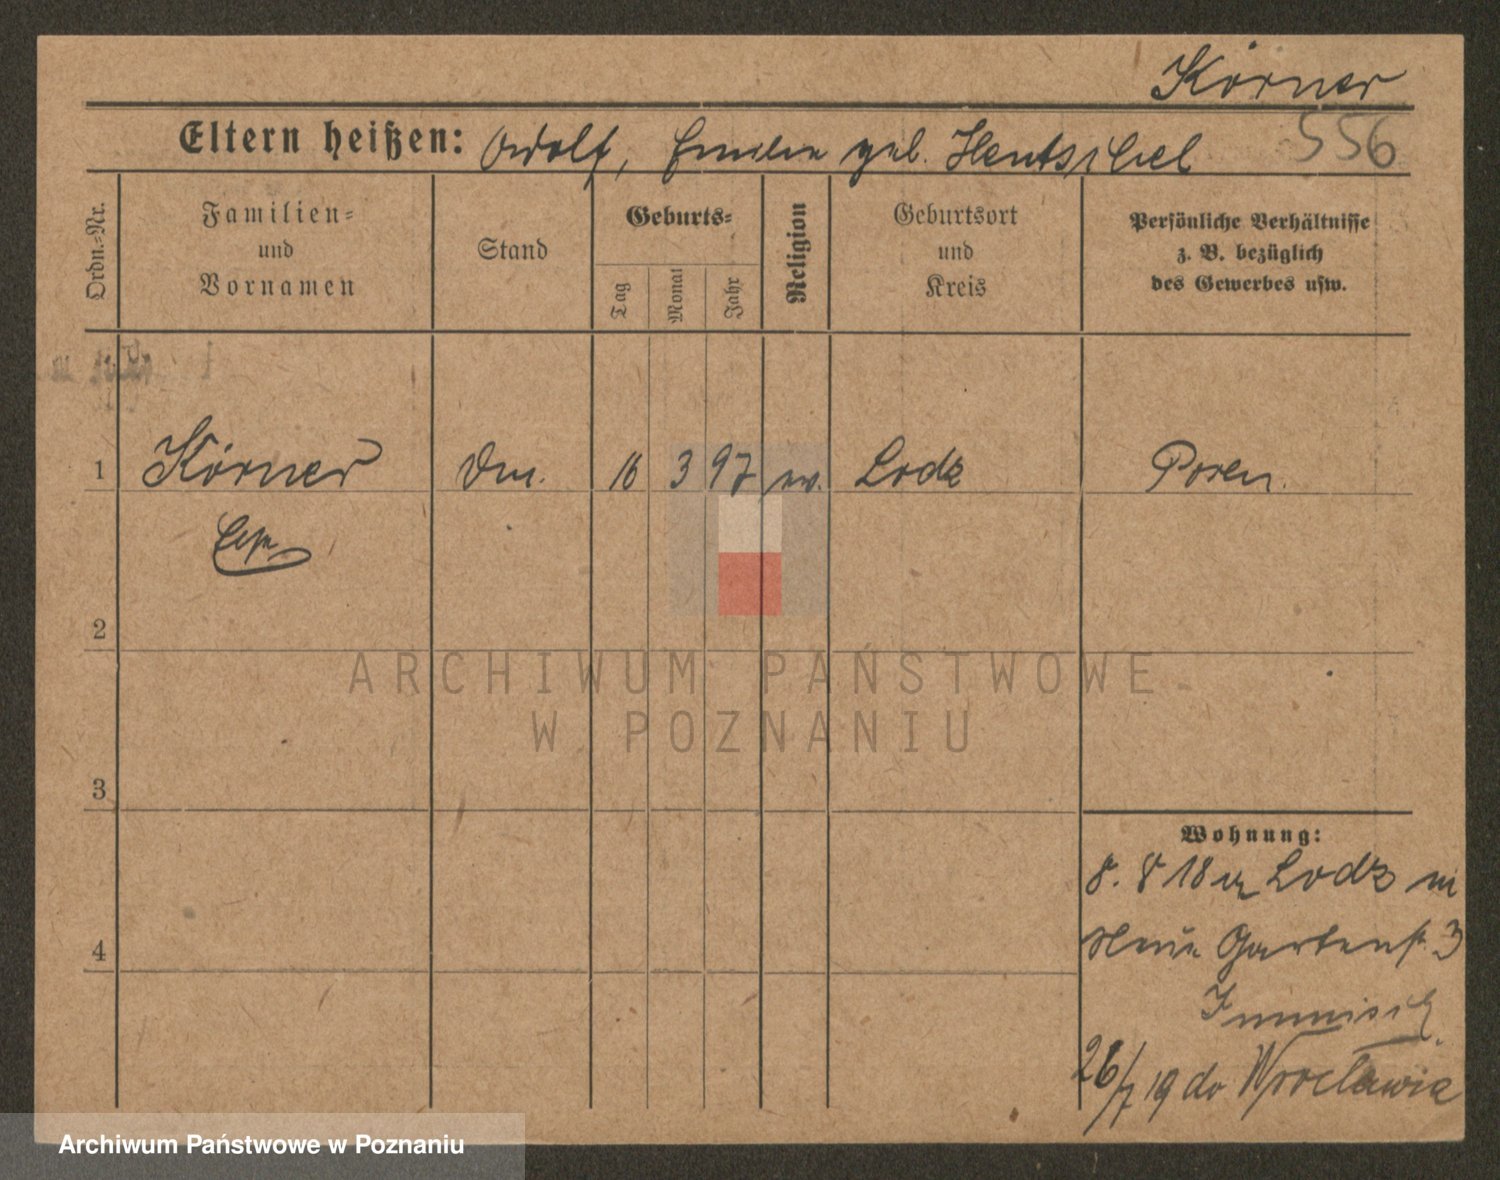 Körner
556
Eltern heißen: Adolf, Emilie geb. Hentschel
Ordn.-Nr.
Familien-
und
Vornamen
Stand
Geburts-
Tag
Monat
Jahr
Religion
Geburtsort
und
Kreis
Persönliche Verhältnisse
z. B. bezüglich
des Gewerbes usw.
1 Körner 16 3 97 ev. Lodz Posen.
2
3
4
Wohnung:
8. 8 18 Lodz
Gartenstr. 3
26/7 19 do Wrocławia
ARCHIWUM PAŃSTWOWE
W POZNANIU
Archiwum Państwowe w Poznaniu